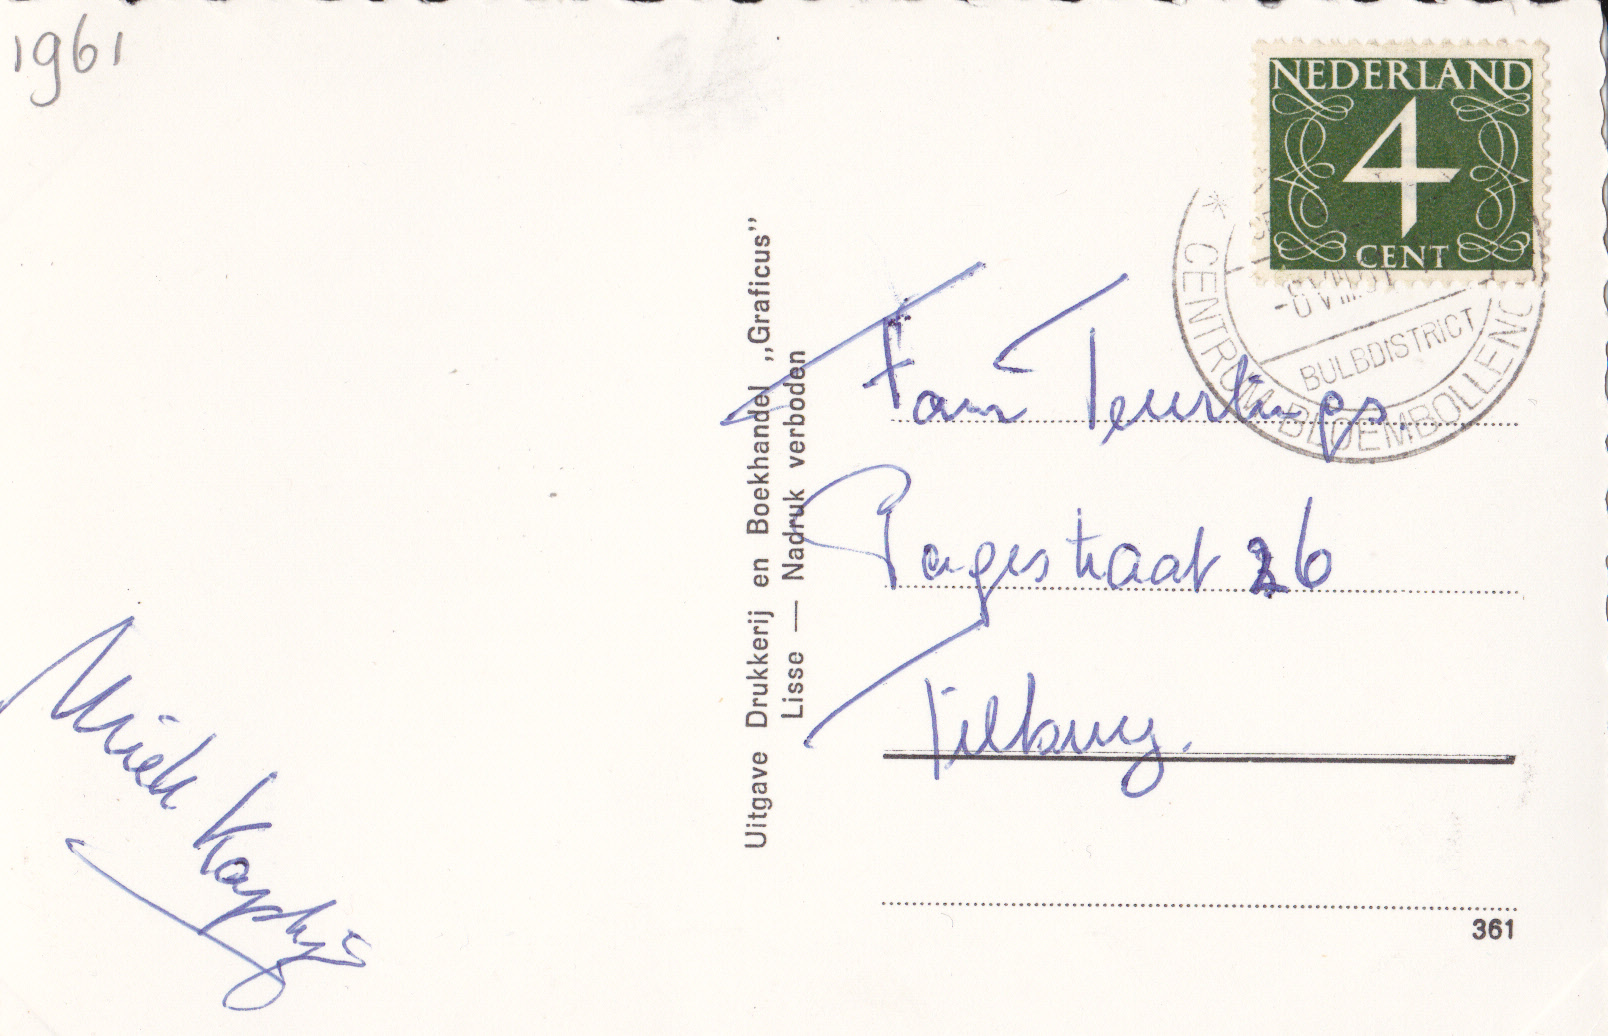 1961
NEDERLAND
4
CENT
CENTRUM BLOEMBOLLEN
BULBDISTRICT
Uitgave Drukkerij en Boekhandel „Graficus”
Lisse — Nadruk verboden
Fam Teurlings.
26
Tilburg.
Miek
361